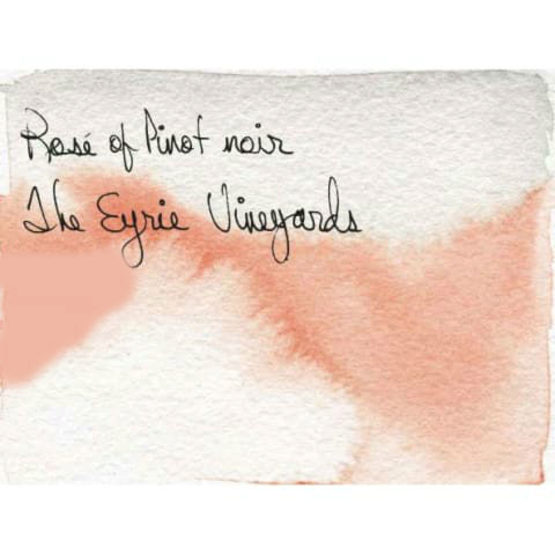 Rosé of Pinot noir
The Eyrie Vineyards